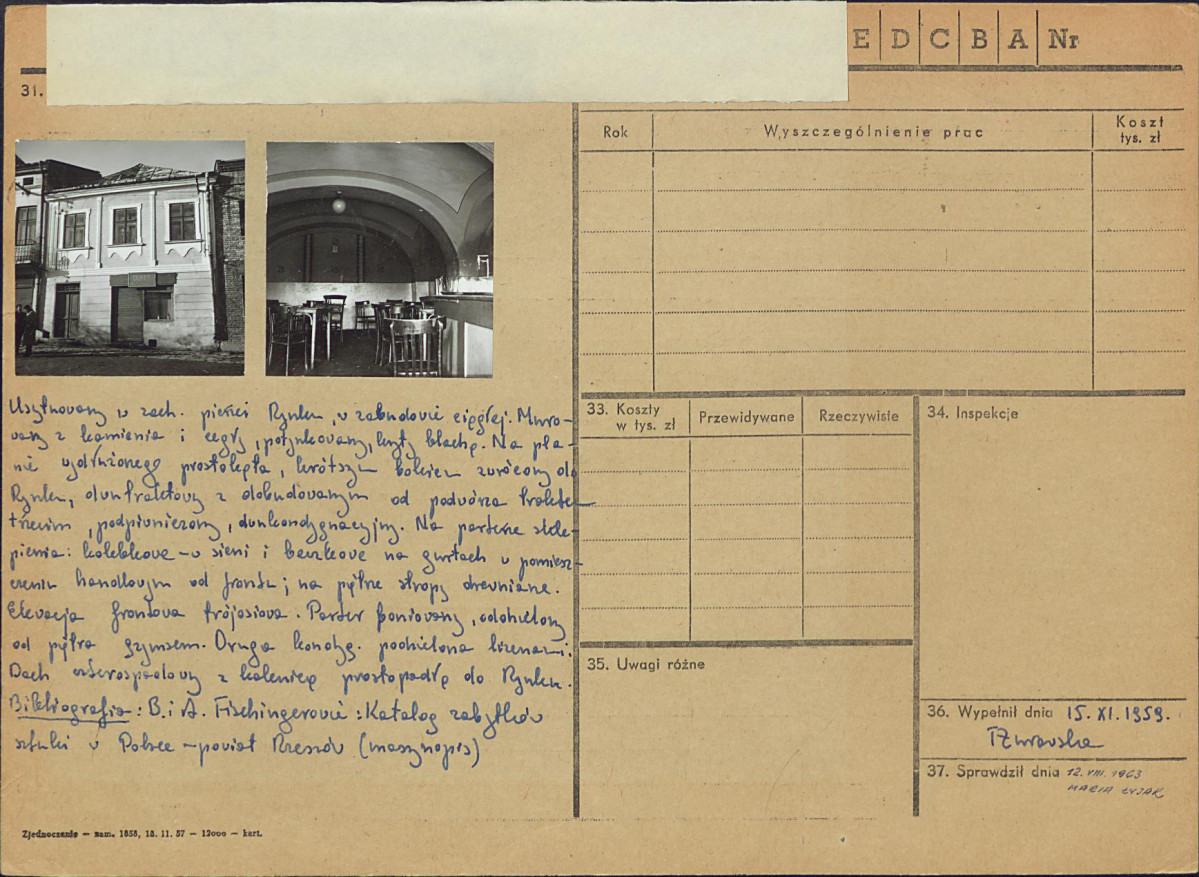 E D C B A Nr
31.
Rok Wyszczególnienie prac Koszt tys. zł
Usytuowany w zach. pierzei Rynku, w zabudowie ciągłej. Muro-
wany z kamienia i cegły, potynkowany, kryty blachą. Na pla-
nie wydłużonego prostokąta, krótszym bokiem zwrócony do
Rynku, dwutraktowy z dobudowanym od podwórza traktem
trzecim, podpiwniczony, dwukondygnacyjny. Na parterze skle-
pienia: kolebkowe - w sieni i beczkowe na gurtach w pomiesz-
czeniu handlowym od frontu; na piętrze stropy drewniane.
Elewacja frontowa trójosiowa. Parter boniowany, oddzielony
od piętra gzymsem. Druga kondyg. podzielona lizenami.
Dach czterospadowy z kalenicą prostopadłą do Rynku.
Bibliografia: B. i A. Fischingerowie: Katalog zabytków
sztuki w Polsce - powiat Rzeszów (maszynopis)
Zjednoczenie — zam. 1858, 18. 11. 57 — 12000 — kart.
33. Koszty w tys. zł Przewidywane Rzeczywiste
34. Inspekcje
35. Uwagi różne
36. Wypełnił dnia 15. XI. 1959.
37. Sprawdził dnia 12. VIII. 1963
MARIA